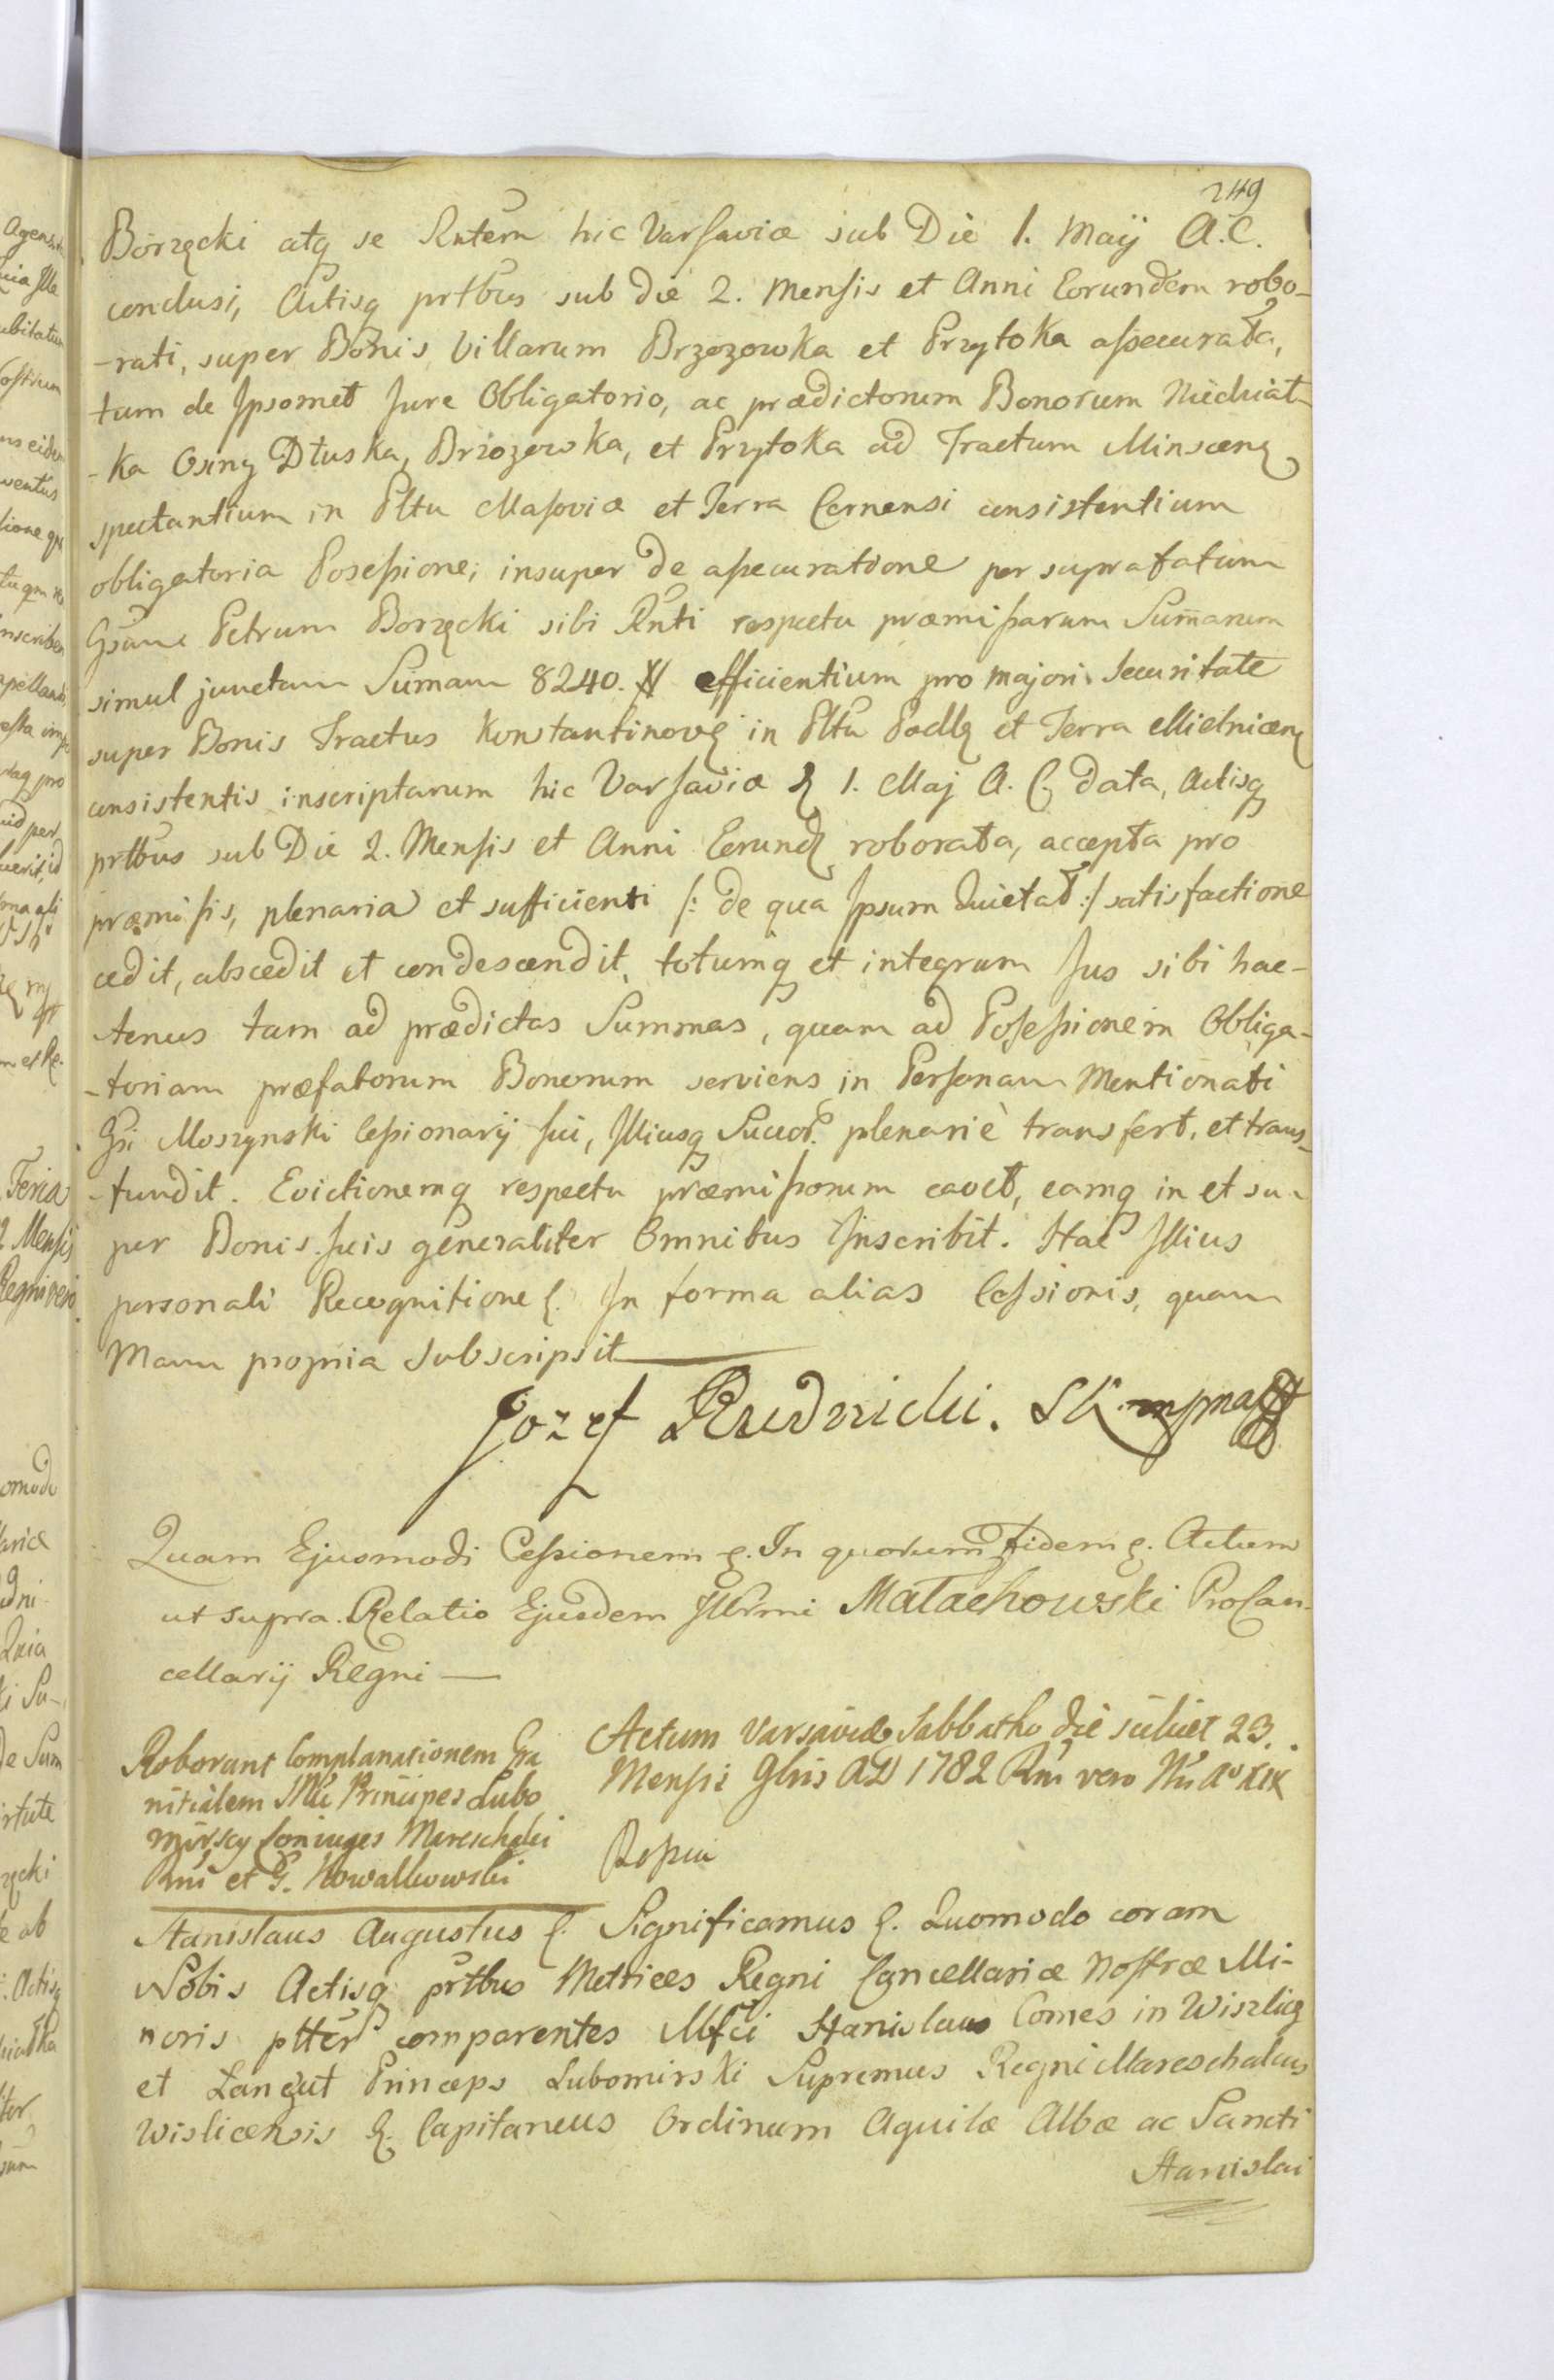 249
Borzęcki atq se Rntem hic Varsaviæ sub Die 1. Maij A.C.
conclusi, Actisq prtbus sub die 2. Mensis et Anni Eorundem robo-
-rati, super Bonis Villarum Brzozowka et Przytoka assecurata,
tum de Ipsomet Jure Obligatorio, ac prædictorum Bonorum Niedwiat-
-ka Osiny Dłuska, Brzozowka, et Przytoka ad Tractum Minscens
spectantium in Pltu Masoviæ et Terra Cernensi consistentium
obligatoria Possessione; insuper de assecuratione per suprafatum
Gsum Petrum Borzęcki sibi Rnti respectu præmissarum Sumarum
simul junctam Sumam 8240. # efficientium pro majori Securitate
super Bonis Tractus Konstantinov in Pltu Podl et Terra Mielnicen
consistentis inscriptarum hic Varsaviæ 1. Maj A. C. data, Actisq
prtbus sub Die 2. Mensis et Anni Eorund roborata, accepta pro
præmissis, plenaria et sufficienti /: de qua Ipsum Quietat :/ satisfactione
cedit, abscedit et condescendit, totumq et integrum Jus sibi hac-
-tenus tam ad prædictas Summas, quam ad Possessionem Obliga-
-toriam præfatorum Bonorum serviens in Personam Mentionati
Gsi Moszynski Cessionarij sui, Illiusq Succor. plenariè transfert, et trans-
-fundit. Evictionemq respectu præmissorum cavet, eamq in et su-
per Bonis suis generaliter Omnibus Inscribit. Hac Illius
personali Recognitione In forma alias Cessionis, quam
Manu propria Subscripsit
Jozef Rudnicki. SK mpria
Quam Ejusmodi Cessionem In quorum Fidem Actum
ut supra. Relatio Ejusdem Illmi Małachowski ProCan-
cellarij Regni
Roborant Complanationem Gra
nitialem Principes Lubo
mirscy Coniuges Mareschalci
Rni et G. Kowalkowski
Actum Varsaviæ Sabbatho die scilicet 23.
Mensis 9bris AD 1782 Rni vero Nri Ao XIX
Stanislaus Augustus Significamus Quomodo coram
Nobis Actisq prtbus Metrices Regni Cancellariæ Nostræ Mi-
noris plter comparentes Mfci Stanislaus Comes in Wiszlicz
et Łancut Princeps Lubomirski Supremus Regni Mareschalcus
Wislicensis Capitaneus Ordinum Aquilæ Albæ ac Sancti
Stanislai